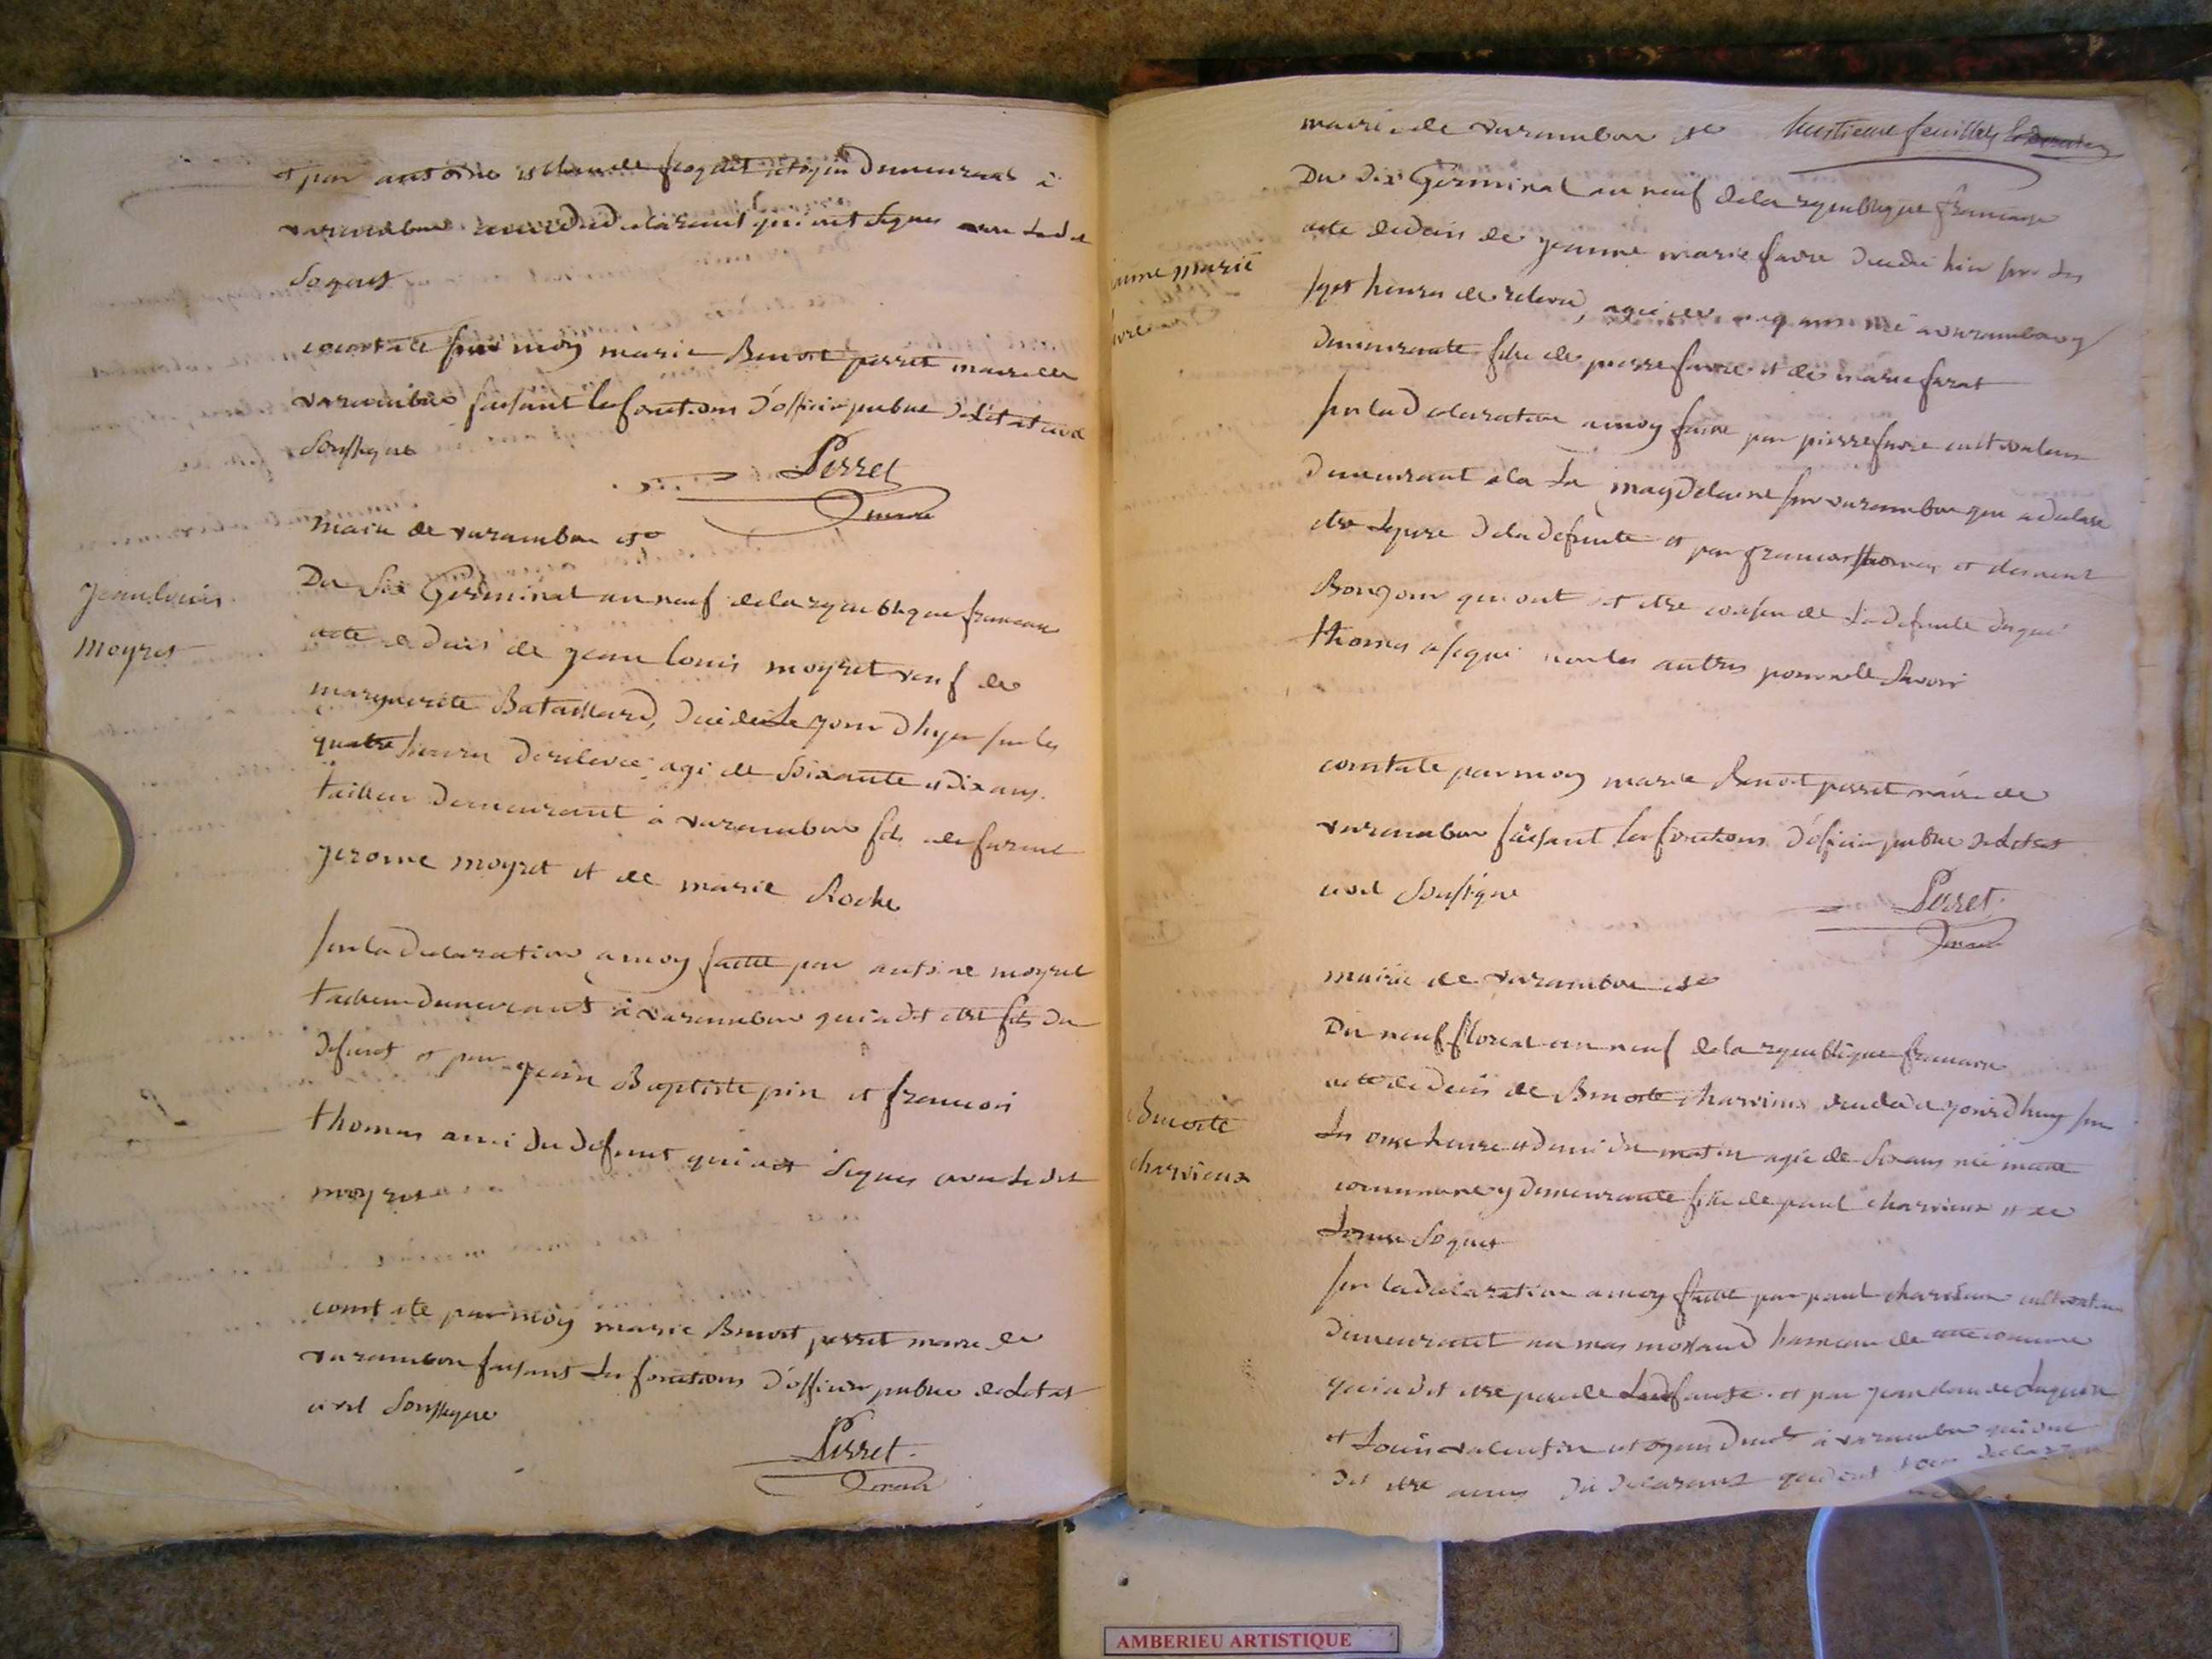 et par antoine et claude soquet citoyin demeurant à
varambon  declarant qui ont signes avec le dit
Soquet
constaté par moy marie Benoit perret maire de
varambon faisant les fonctions d'officier public de l'état civil
Soussigné
Perret
maire
mairie de varambon etc
jean louis
moyret
Du Six Germinal an neuf de la republique francaise
acte de décès de jean louis moyret veuf de
marguerite Bataillard, decedé le jour dhyer sur les
quatre heures de relevée agé de Soixante et dix ans
tailleur demeurant à varambon fils de
jerome moyret et de marie Roche
sur la declaration a moy faitte par antoine moyret
tailleur demeurant à varambon qui a dit etre fils du
defunt et par jean Baptiste pin et francois
thomas ami du defunt qui ont signes avec le dit
moyret
constaté par moy marie Benoit perret maire de
varambon faisant les fonctions d'officier public de l'etat
civil Soussigné
Perret
maire
mairie de varambon etc huitieme feuillet
jeanne marie
favre
Du dix Germinal an neuf de la republique francaise
acte de décès de jeanne marie favre decedé hier sur les
sept heures de relevé, agée de cinq ans né a varambon y
demeurante fille de pierre favre et de marie ferat
sur la declaration a moy faitte par pierre favre cultivateur
demeurant a la magdelaine sur varambon qui a declaré
etre le pere de la defunte et par francois thomas et
Bonjour qui ont dit etre cousin de la defunte
thomas a signé non les autres pour ne le savoir
constaté par moy marie Benoit perret maire de
varambon faisant les fonctions d'officier public de l'etat
civil Soussigné
Perret
maire
mairie de varambon etc
Benoite
charvieux
Du neuf floreal an neuf de la republique francaise
acte de décès de Benoite charvieux decedée jourdhuy sur
les onze heure et demi du matin agée de six ans né en cette
commune y demeurante fille de paul charvieux et de
Soquet
sur la declaration a moy faitte par paul charvieux cultivateur
demeurant au mas morand hameau de cette commune
qui a dit etre pere de la defunte et par jean claude
et Louis valentin citoyens à varambon qui ont
dit etre amis du declarant qui ont
AMBERIEU ARTISTIQUE